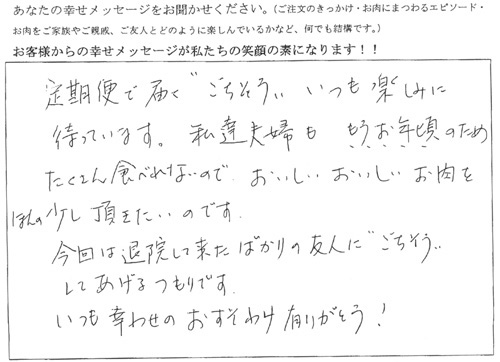 あなたの幸せメッセージをお聞かせください。(ご注文のきっかけ・お肉にまつわるエピソード・
お肉をご家族やご親戚、ご友人とどのように楽しんでいるかなど、何でも結構です。)
お客様からの幸せメッセージが私たちの笑顔の素になります!!
定期便で届く"ごちそう〟いつも楽しみに
待っています。私達夫婦も もうお年頃のため
たくさん食べれないので おいしい おいしい お肉を
ほんの少し頂きたいのです.
今回は退院して来たばかりの友人に"ごちそう〟
してあげるつもりです.
いつも幸わせの おすそわけ 有りがとう!